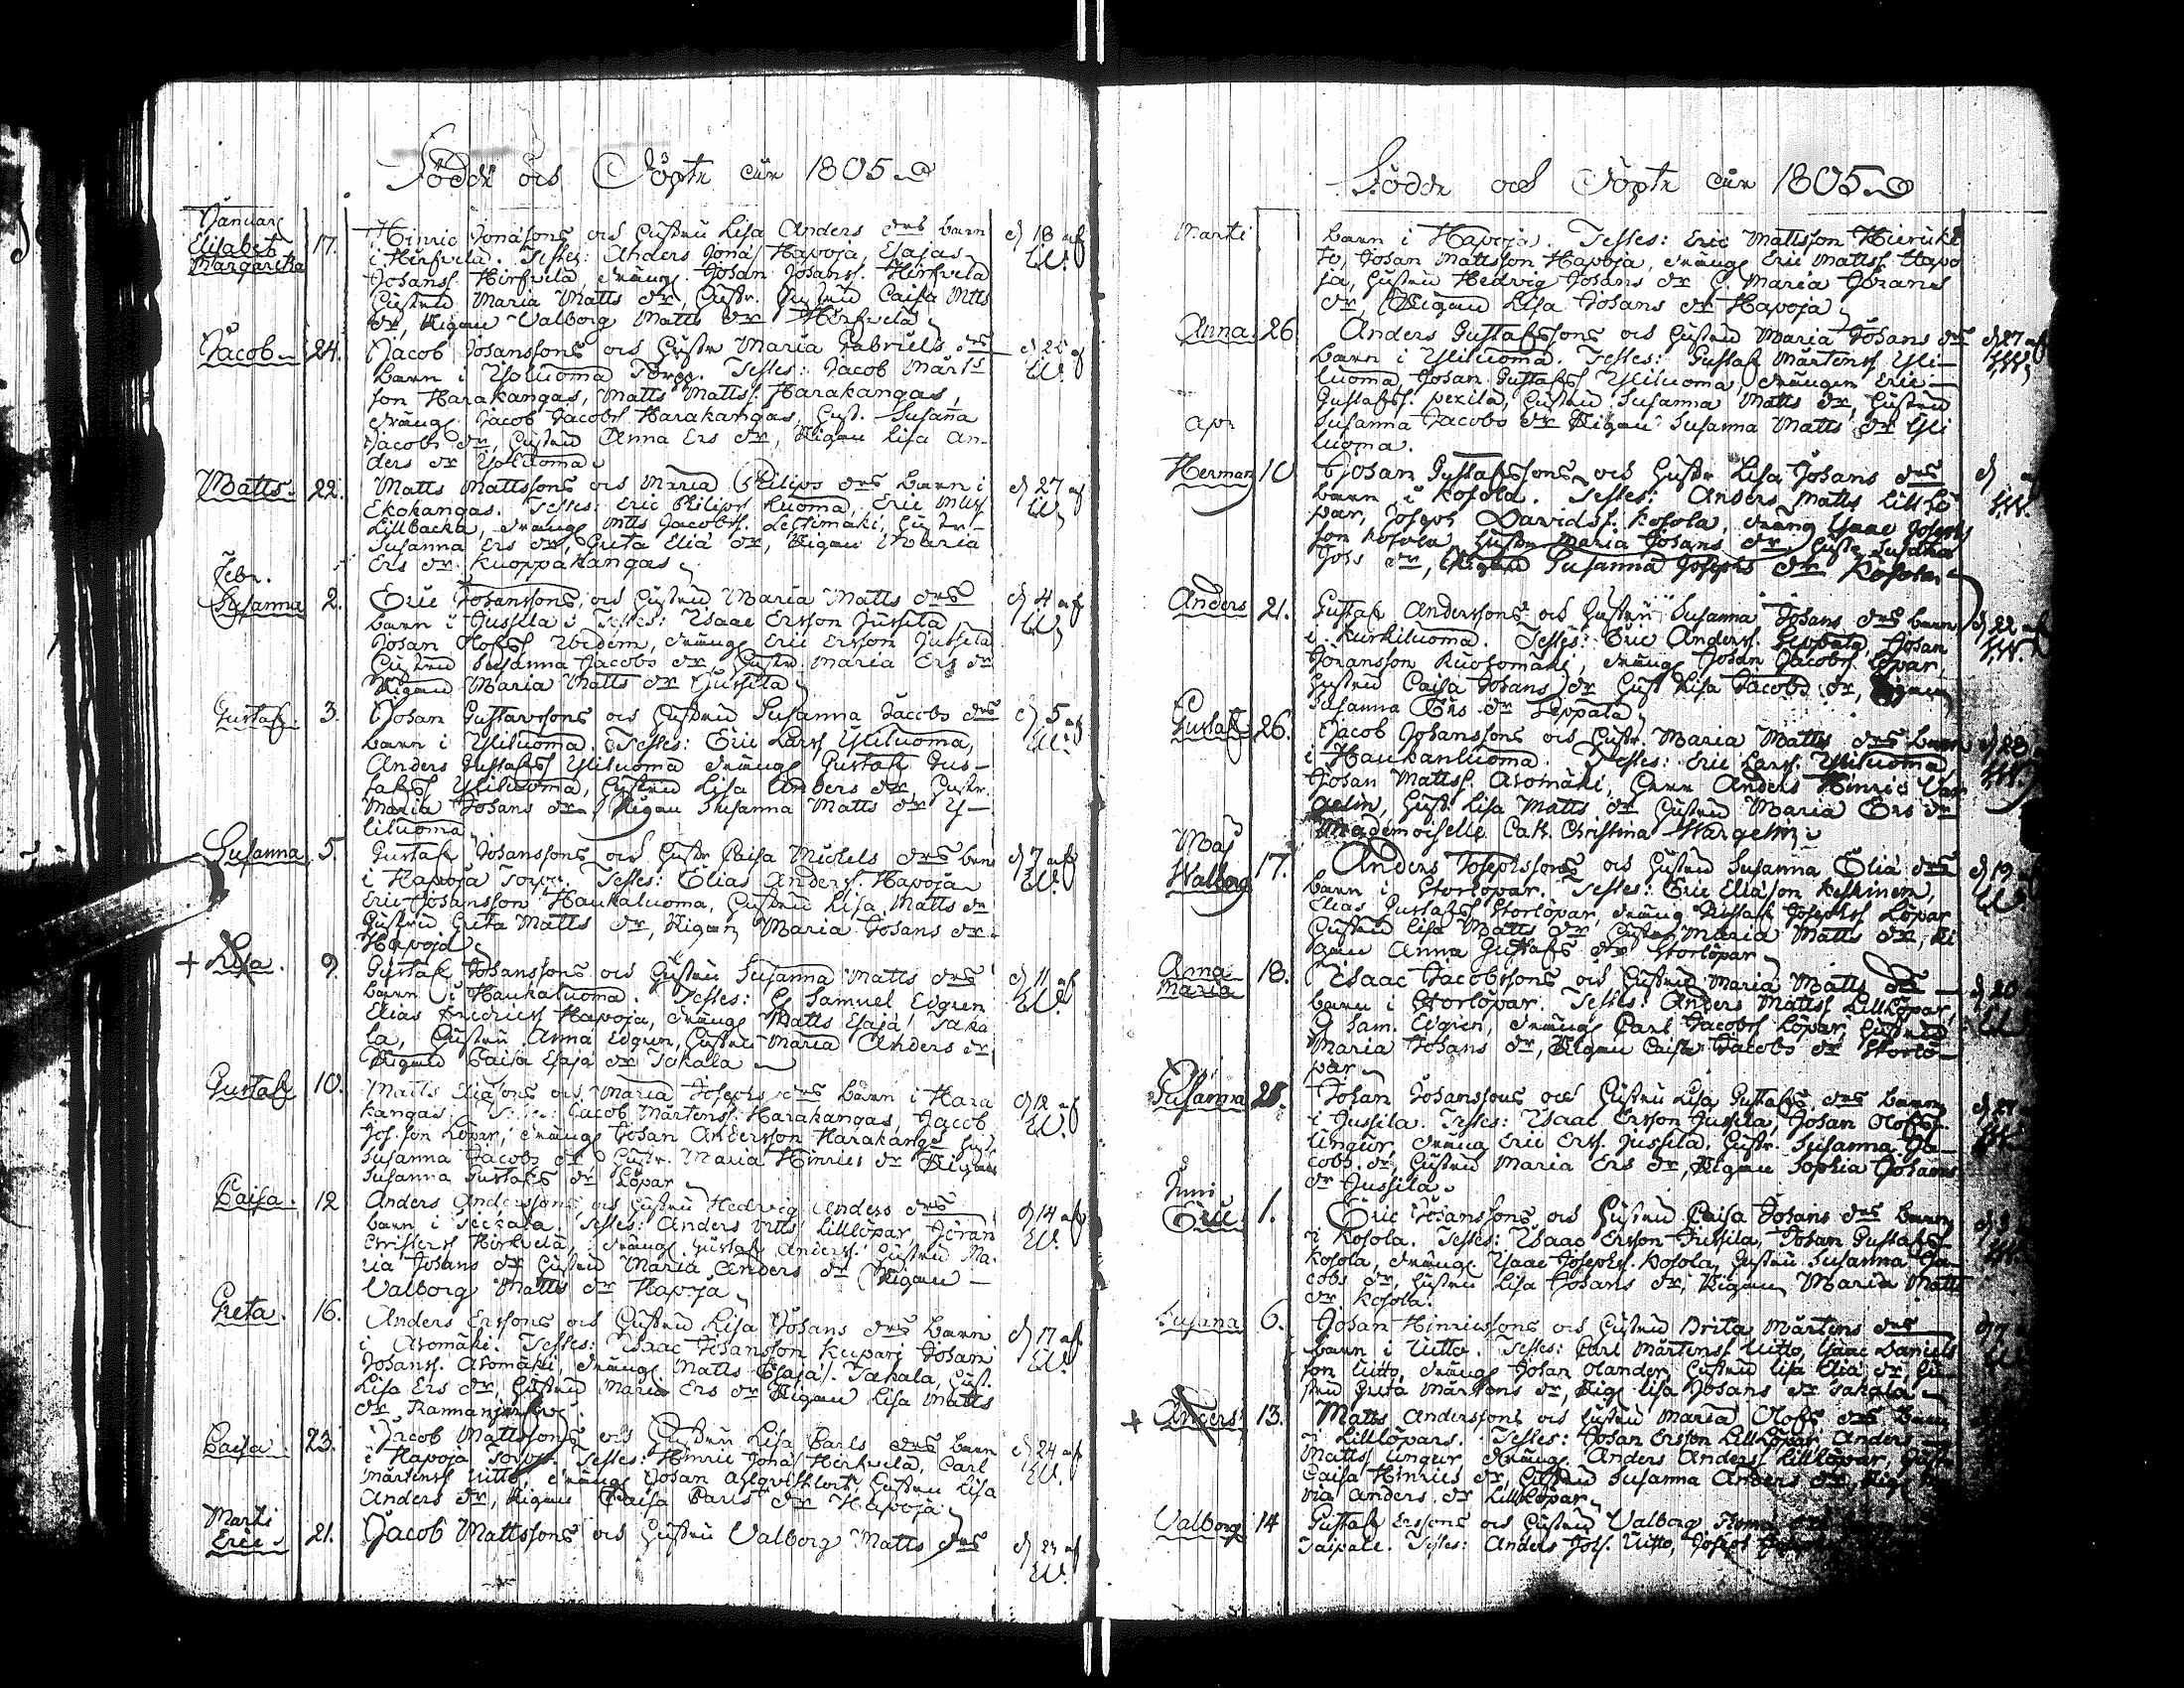 Födde och Döpte åhr 1805
Januari
Elisabet Margareta 17. Hinric Jonæsons och Hustru Lisa Anders drs barn d 18 af
i Hirfvelä. Testes: Anders Jonæs. Hapoja, Esajas W.
Johanss. Hirfvelä, dräng. Johan Johanss. Hirfvelä
Hustrud Maria Matts dr, Caisa Mtts
dr, Pigan Valborg Matts dr Hirfvelä
Jacob 24. Jacob Johanssons och Hustr Maria Gabriels drs d 25 af
barn i Yliluoma Torpp. Testes: Jacob Mårts W.
son Harakangas, Matts Matts. Harakangas,
dräng. Jacob Jacobs. Harakangas, Hust. Susana
Jacobs dr, Hustrud Anna Ers dr, Pigan Lisa An-
ders dr Yliluoma
Matts 22. Matts Mattssons och Maria Philips drs barn i d 27 af
Ekokangas. Testes: Eric Philips. Luoma, Eric Mtts W.
Lillbacka, dräng. Mtts Jacobs. Lehtimäki, Hustr
Susanna Ers dr, Greta Eliæ dr, Pigan Maria
Ers dr Kuoppakangas
Febr.
Susanna 2. Eric Johanssons och Hustrud Maria Matts drs d 4 af
barn i Jussila. Testes: Isaac Ersson Jussila W.
Johan Olofs. Ibidem, dräng. Eric Ersson Jussila
Hustrud Susanna Jacobs dr, Hustr. Maria Ers dr
Pigan Maria Matts dr Jussila
Gustaf 3. Johan Gustavssons och Hustrud Susanna Jacobs drs d 5 af
barn i Yliluoma. Testes: Eric Larss. Yliluoma, W.
Anders Gustafs. Yliluoma dräng. Gustaf Gus-
tafs. Yliluoma, Hustrud Lisa Anders dr, Hustr.
Maria Johans dr, Pigan Susanna Matts dr Y-
liluoma
Susanna 5. Gustaf Johanssons och Hustr Caisa Michels drs barn d 7 af
i Hapoja Torpp. Testes: Elias Anders. Hapoja W.
Eric Johansson Haukaluoma, Hustrud Lisa Matts dr
Hustrud Greta Matts dr, Pigan Maria Johans dr
Hapoja
+ Lisa. 9. Gustaf Johanssons och Hustru Susanna Matts drs d 11 af
barn i Haukaluoma. Testes: G Samuel Edgren W.
Elias Fredrics. Hapoja, dräng. Matts Esajæ Taka
la, Hustru Anna Edgren, Hustru Maria Anders dr
Pigan Caisa Esajæ dr Takala
Gustaf 10. Matts Eliæsons och Maria Josephs drs barn i Hara d 12 af
kangas. Testes: Jacob Mårtens. Harakangas, Jacob W.
Jos. son Löpar, dräng. Johan Andersson Harakangs Hust
Susanna Jacobs dr Hustr. Maria Hinrics dr Pigan
Susanna Gustafs dr Löpar
Caisa. 12 Anders Anderssons och Hustru Hedvig Anders drs d 14 af
barn i Teckala. Testes: Anders Mtts Lilllöpar, Jöran W.
Christers. Hirkvelä, dräng. Gustaf Anders. Hustrud Ma-
ria Johans dr Hustrud Maria Anders dr Pigan
Valborg Matts dr Hapoja
Greta. 16. Anders Erssons och Hustrud Lisa Johans drs barn d 17 af
i Aromäki. Testes: Isaac Johansson Keepari Johan W.
Johanss. Aromäki, dräng. Matts Esajæs. Takala, Hust.
Lisa Ers dr, Hustrud Maria Ers dr Pigan Lisa Matts
dr
Caisa. 23. Jacob Mattssons och Hustru Lisa Carls drs barn d 24 af
i Hapoja Torpp. Testes: Hinric Jonæ Hirkvelä, Carl W.
Mårtens. Uitto, dräng. Johan Ahlqvist Hustru Lisa
Anders dr, Pigan Caisa Carls dr Hapoja
Marti
Eric 21. Jacob Mattssons och Hustru Valborg Matts drs d 23 af
W.
Födde och Döpte åhr 1805
Marti barn i Hapoja. Testes: Eric Mattsson
to, Johan Mattsson Hapoja, dräng. Eric Matts. Hapo
ja, Hustru Hedvig Johans dr H. Maria Jörans
dr, Pigan Lisa Johans dr Hapoja
Anna 26 Anders Gustafssons och Hustrud Maria Johans drs d 27 af
barn i Yliluoma. Testes: Gustaf Mårtens. Yli- W.
luoma, Johan Gustafs. Yliluoma, drängen Eric
Gustafs. Perila, Hustrud Susanna Matts dr, Hustrud
Apr Susanna Jacobs dr Pigan Susanna Matts dr Yli
luoma.
Herman 10 Johan Gustafssons och Hustr Lisa Johans drs d af
barn i Kosola. Testes: Anders Matts Lill Lö W.
par, Joseph Davids. Kosola, dräng Isaac Josephs
son Kosola, Hustr Maria Johans dr, Hustr Susanna
Johs dr, Pigan Susanna Josephs dr Kosola
Anders 21. Gustaf Anderssons och Hustru Susanna Johans drs barn d 22 af
i Kurkiluoma. Testes: Eric Anders. Seppälä, Johan W.
Jöransson Ruohomäki, dräng Johan Jacobs. Löpar,
Hustrud Caisa Johans dr Hust Lisa Jacobs dr, Pigan
Susanna Ers dr Seppälä
Gustaf 26. Jacob Johanssons och Hustr. Maria Matts drs barn d 28
i Haukanluoma. Testes: Eric Larss. Yliluoma, W.
Johan Matts. Aromäki, Herr Anders Hinric War
gelin, Hustr Lisa Matts dr Hustrud Maria Ers dr
Mademoiselle Cath. Christina Wargelin
Maj
Walborg 17. Anders Josephssons och Hustrud Susanna Eliæ drs d 19 af
barn i Storlöpar. Testes: Eric Eliæson Keskinen, W.
Elias Gustafs. Storlöpar, dräng Gustaf Josephs. Löpar
Hustrud Lisa Matts dr Hustru Maria Matts dr, Pi
gan Anna Gustafs dr Storlöpar
Anna Maria 18. Isaac Jacobssons och Hustrud Maria Matts drs d 20
barn i Storlöpar. Testes: Anders Matts. Lilllöpar, W.
G Sam. Edgren, dräng Carl Jacobs. Löpar, Hustrud
Maria Johans dr, Pigan Caisa Jacobs dr Storlö-
par
Susanna 25. Johan Johanssons och Hustru Lisa Gustafs drs barn d 27
i Jussila. Testes: Isaac Ersson Jussila, Johan Olofs.
Ungur, dräng Eric Erss. Jussila. Hustr Susanna Ja-
cobs dr, Hustrud Maria Ers dr, Pigan Sophia Johans
dr Jussila
Juni
Eric 1. Eric Johanssons och Hustrud Caisa Johans drs barn d 3
i Kosola. Testes: Isaac Ersson Jussila, Johan Gustafs.
Kosola, dräng. Isaac Josephs. Kosola, Hustru Susanna Ja-
cobs dr, Hustru Lisa Johans dr, Pigan Maria Matts
dr Kosola.
Susanna 6. Johan Hinricssons och Hustrud Brita Mårtens drs
barn i Uitto. Testes: Carl Mårtens. Uitto, Isaac Daniels
son Uitto, dräng Johan Olander, Hustrud Lisa Eliæ dr Hu-
strud Greta Mårtens dr, Pig. Lisa Johans dr Takala
+ Anders 13. Matts Anderssons och Hustru Maria Olofs drs barn
i Lilllöpars. Testes: Johan Ersson Lilllöpar Anders
Matts. Ungur, dräng. Anders Anders. Lilllöpar, Hustr
Caisa Hinrics dr, Hustrud Susanna Anders dr, Pig.
ria Anders dr Lilllöpar
Valborg 14 Gustaf Erssons och Hustrud Valborg
Taipale. Testes: Anders Johs. Uitto, Joseph